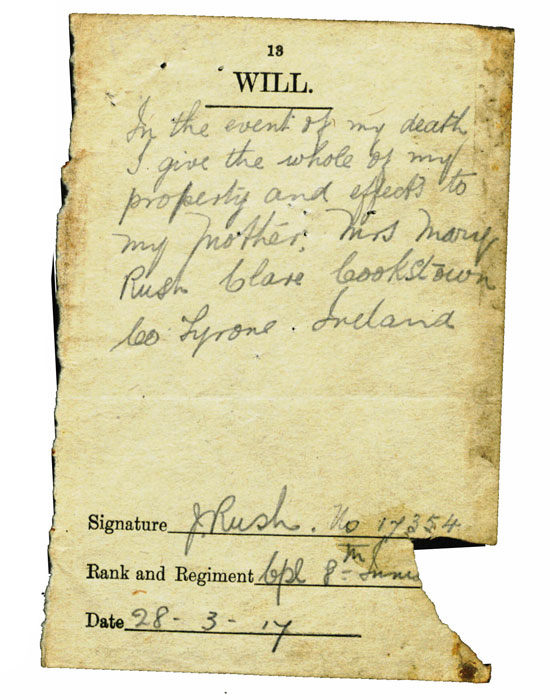 13
WILL.
In the event of my death
I give the whole of my
property and effects to
my mother, Mrs Mary
Rush Clare Cookstown
Co Tyrone. Ireland
Signature J. Rush. No 17354
Rank and Regiment Cpl 8th Innis
Date 28 - 3 - 17